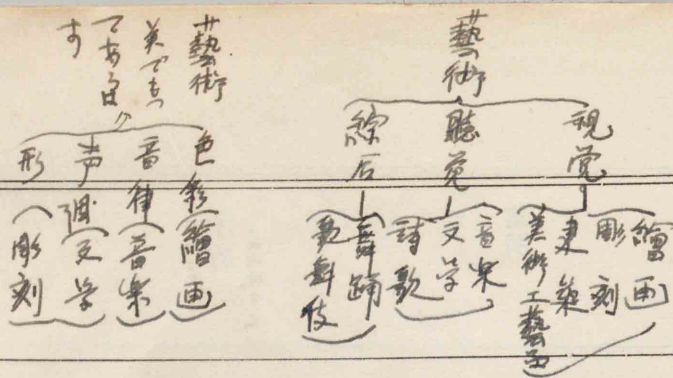 藝術
視覚
繪画
彫刻
建築
美術工藝品
聴覚
音楽
文学
詩歌
綜合
舞踊
歌舞伎
藝術
美でもつ
てあらは
す
色彩(繪画)
音律(音楽)
声調(文学)
形(彫刻)